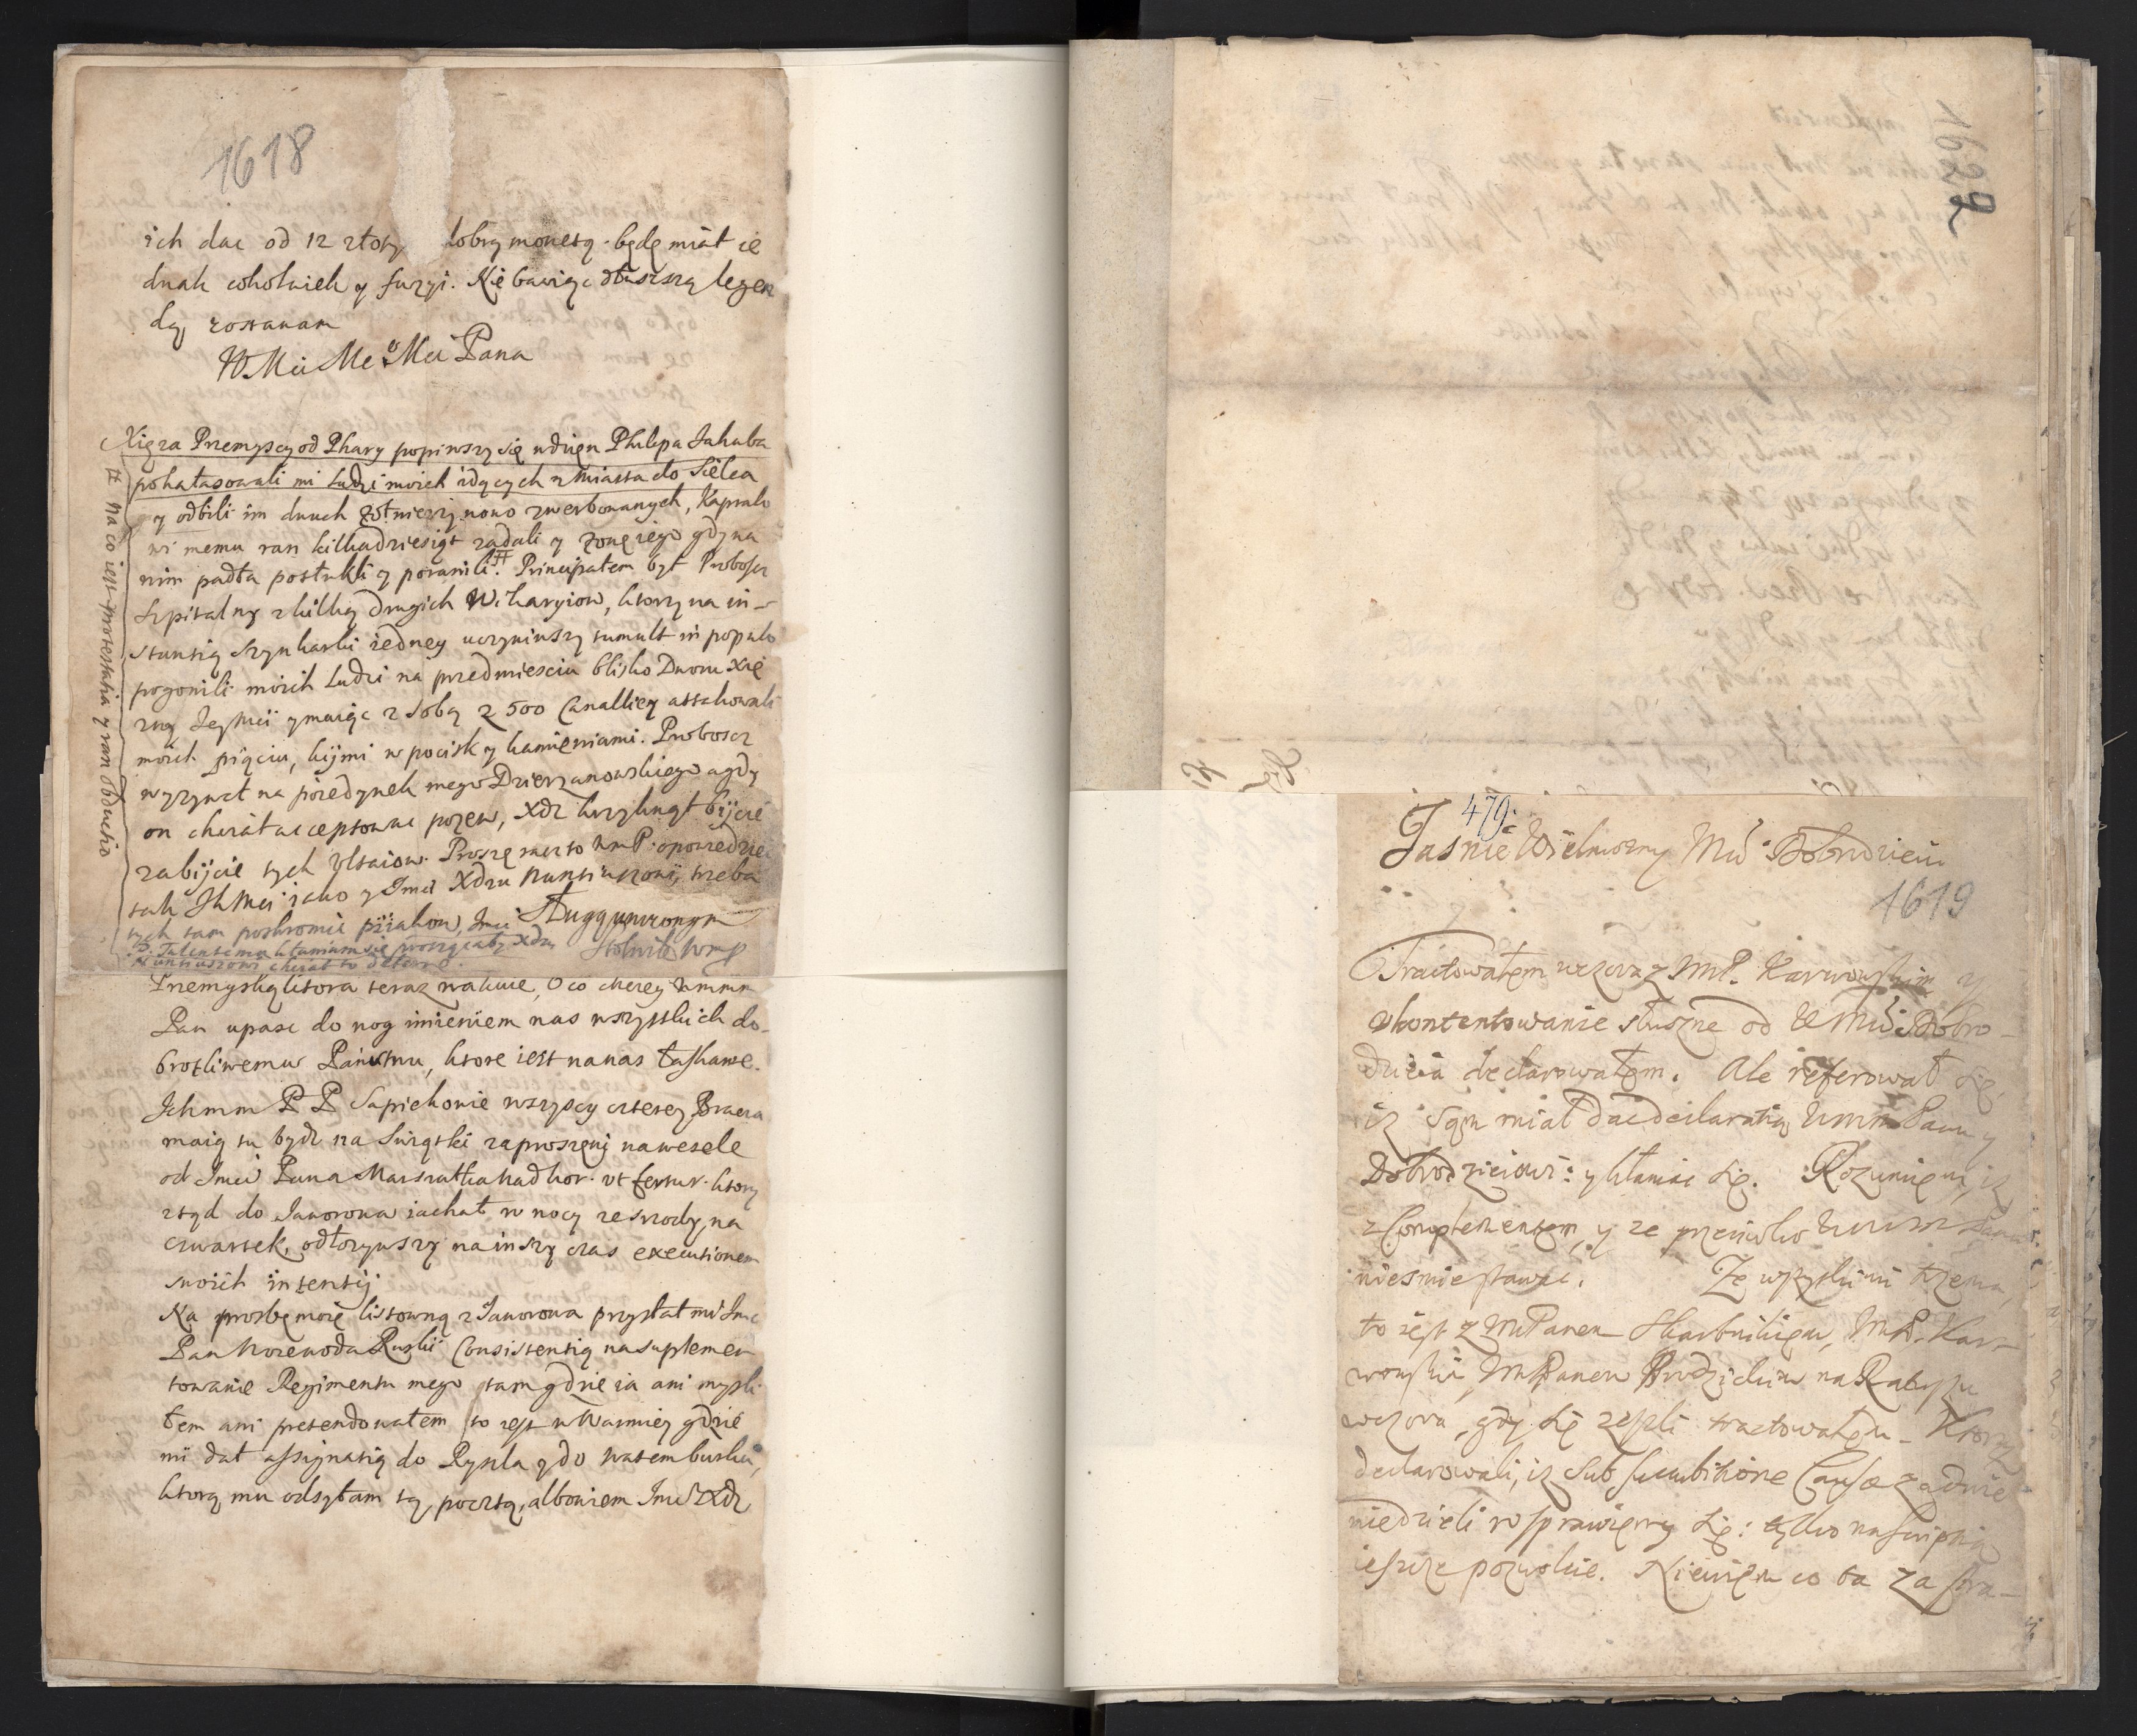 1618
ich dac od 12 złoty dobry monetą. będę miał ie
dnak cokolwiek y fuzyi. Nie bawiąc dłuszszą legen
dą, zostawam
WMci Mego Mci Pana
Xięza Przemyscy od Phary popiwszy się w dzien Philipa Jakuba
pohałasowali mi ludzi moich idących z Miasta do Sielca
y odbili im dwuch żołnierzy nowo zwerbowanych, Kapralo
wi memu ran kilkadziesiąt zadali y żonę iego gdy na
nim padła postukli y poranili # Principałem był Proboszcz
Szpitalny z kilką drugich Wikaryiow, ktorzy na in-
stantią Szynkarki iedney uczyniwszy tumult in populo
pogonili moich ludzi na przedmiesciu blisko Dworu Xię
zny Jeymci y maiąc z sobą z 500 Canalliey attakowali
moich pięciu, kijmi w pocisk y kamieniami. Proboszcz
wyzywał na poiedynek mego Dzierzanowskiego a gdy
on chciał acceptowac pozew, Xdz krzyknął bijcie
zabijcie tych hltaiow. Proszę racz to WmP. opowiedziec
tak JkMci iako y Jmci Xdzu Nuntiuszowi, trzeba
tych tam poskromic piiakow, Jmci
Sługą uniżonym
P. Talentemu kłaniam się proszę aby Xdzu
Nuntiuszowi chciał to
Stolnik Wmp
# na co iest protestatia y ran obductio
Przemyską ktora teraz wakuie, O co chciey Wmmm
Pan upasc do nog imieniem nas wszystkich do-
brotliwemu Państwu, ktore iest na nas łaskawe.
Ichmm PP Sapiehowie wszyscy czterey Bracia
maią tu bydz na Swiątki zaproszeni na wesele
od Jmci Pana Marszałka Nad kor. ut fertur. ktory
ztąd do Jaworowa iachał w nocy ze srody, na
czwartek, odłozywszy na inszy czas executionem
swoich intentij
Na prosbę moię listowną z Jaworowa przysłał mi Jmc
Pan Woiewoda Ruskii Consistentią na suplemen
towanie Regimentu mego tam gdzie ia ani mysli
łem ani pretendowałem to iest w Warmiey gdzie
mi dał assignatią do Ryszla y do Watemburku,
ktorą mu odsyłam tą pocztą, albowiem Jmc Xdz
1629
479.
Jasnie Wielmozny Mci Dobrodzieiu
1619
Tractowałem wczora z ImP. Karwowskim y
ukontentowanie słuszne od WMci Dobro-
dzieia declarowałem. Ale referował się,
iz sąm miał dac declaratią Wmm Panu y
Dobrodzieiowi: y kłaniac się. Rozumiem, iz
z Complementem, y ze przeciwko Wmm Panu
niesmie stawac. Ze wszytkimi trzema,
to iest z ImPanem Skarbnikiem, ImP. Kar-
wowskim, ImPanem Brodzickim na Ratuszu
wczora, gdy się zeszli tractowałem. Ktorzy
declarowali, iz sub succubitione Causae za dwie
niedzieli rosprawiemy się: tylko na scripcie
ieszcze pozwolcie. Niewiem co ta za spra-